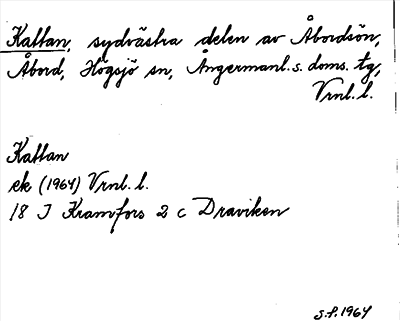 Kattan, sydvästra delen av Åbordsön,
Åbord, Högsjö sn, Ångermanl. s. doms. tg,
Vrnl. l.
Kattan
ek (1964) Vrnl. l.
18 I Kramfors 2 c Draviken
S.F. 1964